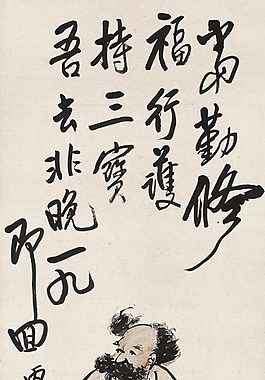 當勤修
福行護
持三寶
吾去非晚一九
即回